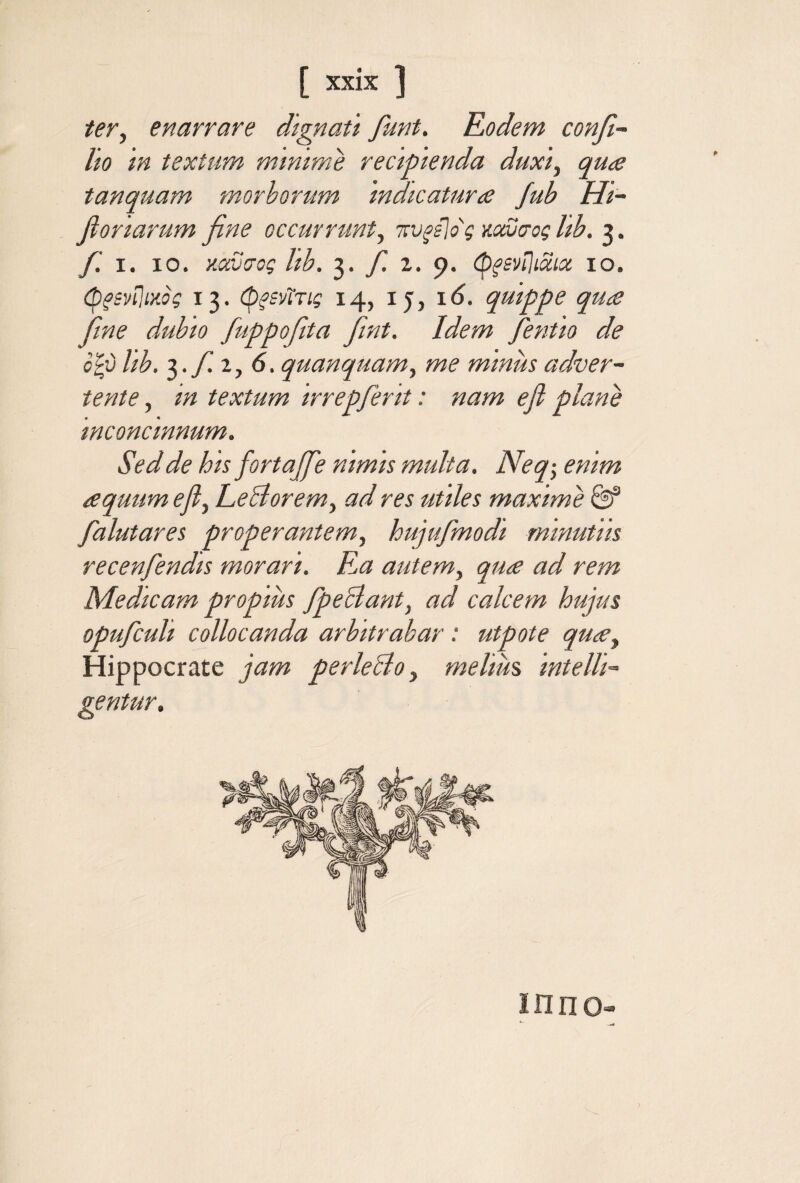 [ xxix ]
ter, enarrare dignati ſunt. Eodem conſi-
lio in textum minimè recipienda duxi, quæ
tanquam morborum indicaturæ ſub Hi-
ſtoriarum fine occurrunt, πυρεῖὸς καῦσος lib. 3.
ſ. 1. 10. καῦσος lib. 3. ſ. 2. 9. φρενιῖιαῖα 10.
φρενιῖικὸς 13. φρενῖτις 14, 15, 16. quippe quæ
ſine dubio ſuppoſita ſint. Idem ſentio de
ὀξὺ lib. 3. ſ. 2, 6. quanquam, me minùs adver-
tente, in textum irrepſerit: nam eſt planè
inconcinnum.
Sed de his fortaſſe nimis multa. Neq; enim
æquum eſt, Lectorem, ad res utiles maximè &
ſalutares properantem, hujuſmodi minutiis
recenſendis morari. Ea autem, quæ ad rem
Medicam propiùs ſpectant, ad calcem hujus
opuſculi collocanda arbitrabar: utpote quæ,
Hippocrate jam perlecto, meliùs intelli-
gentur.
Inno-